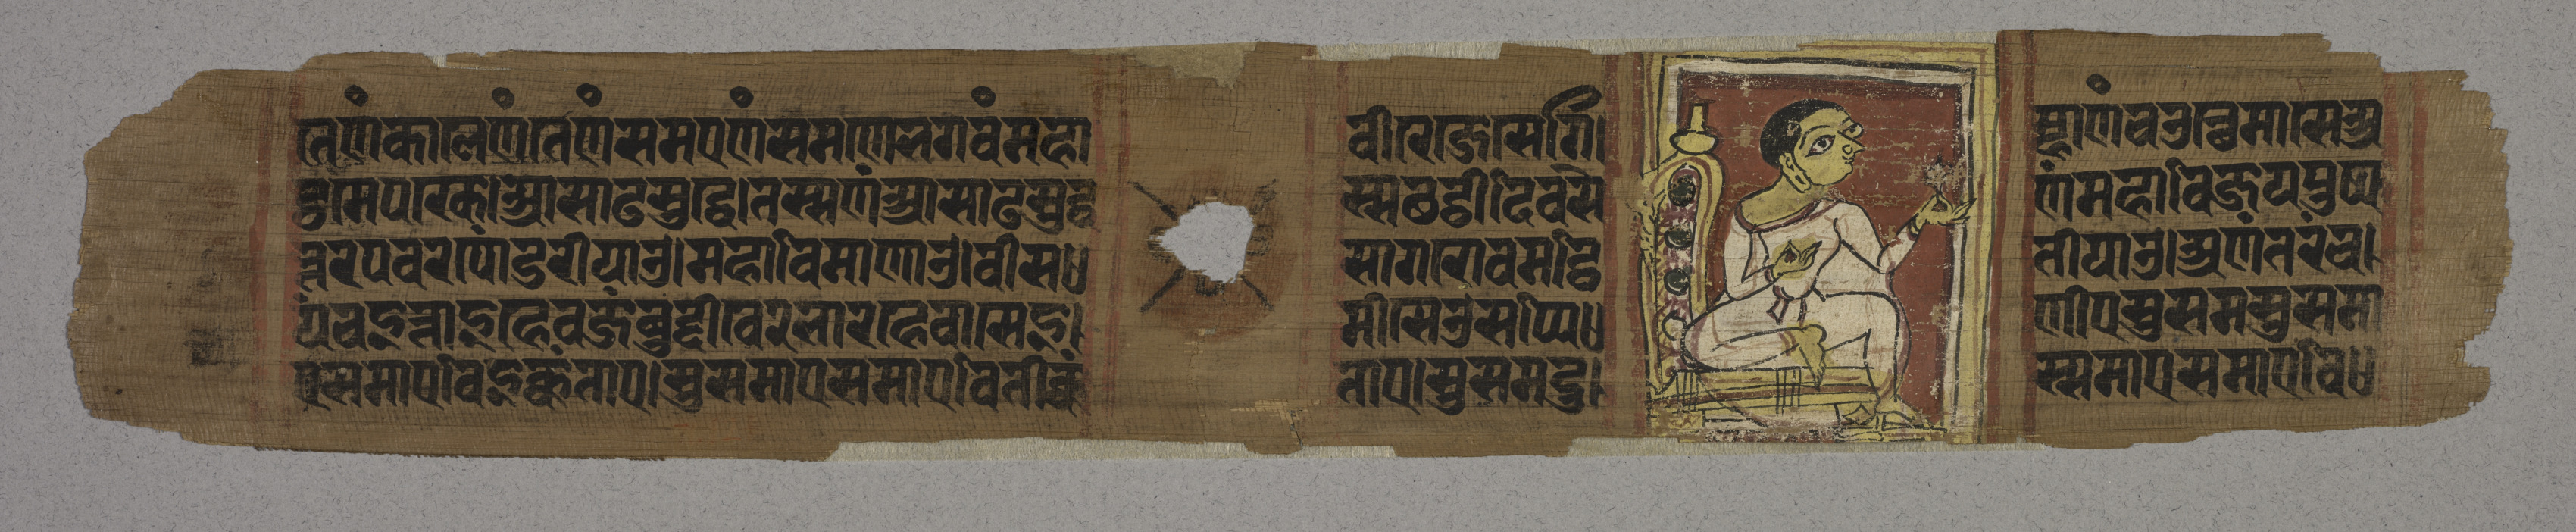 तेणं कालेणं तेणं समएणं समणे भगवं महावीरे जे से गिम्हाणं चउत्थे मासे अ
ट्ठमे पक्खे आसाढसुद्धे तस्स णं आसाढसुद्धस्स छट्ठीदिवसेणं महाविजयपुप्फु
त्तरपवरपोंडरीयाओ महाविमाणाओ वीसं सागरोवमट्ठितीयाओ अणंतरं च
यं चइत्ता इहेव जंबुद्दीवे २ भारहे वासे इमीसे ओसप्पिणीए सुसमसुसमा
ए समाए विइक्कंताए सुसमाए समाए वितीक्कंताए सुसमदुस्समाए समाए वि